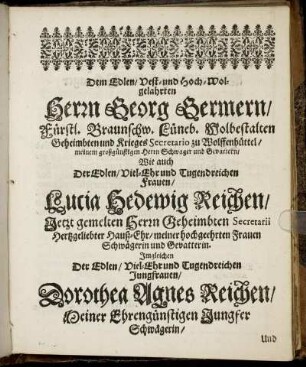 Dem Edlen/ Vest-und Hoch-Wol-
gelahrten
Herrn Georg Germern/
Fürstl. Braunschw. Lüneb. Wolbestalten
Geheimbten und Krieges Secretario zu Wolffenbüttel/
meinem großgünstigen Herrn Schwager und Gevattern/
Wie auch
Der Edlen/ Viel-Ehr und Tugendreichen
Frauen/
Lucia Hedewig Reichen/
Jetzt gemelten Herrn Geheimbten Secretarii
Hertzgeliebter Hauß-Ehr/ meiner hochgeehrten Frauen
Schwägerin und Gevatterin.
Imgleichen
Der Edlen/ Viel-Ehr und Tugendreichen
Jungfrauen/
Dorothea Agnes Reichen/
Meiner Ehrengünstigen Jungfer
Schwägerin/
Und